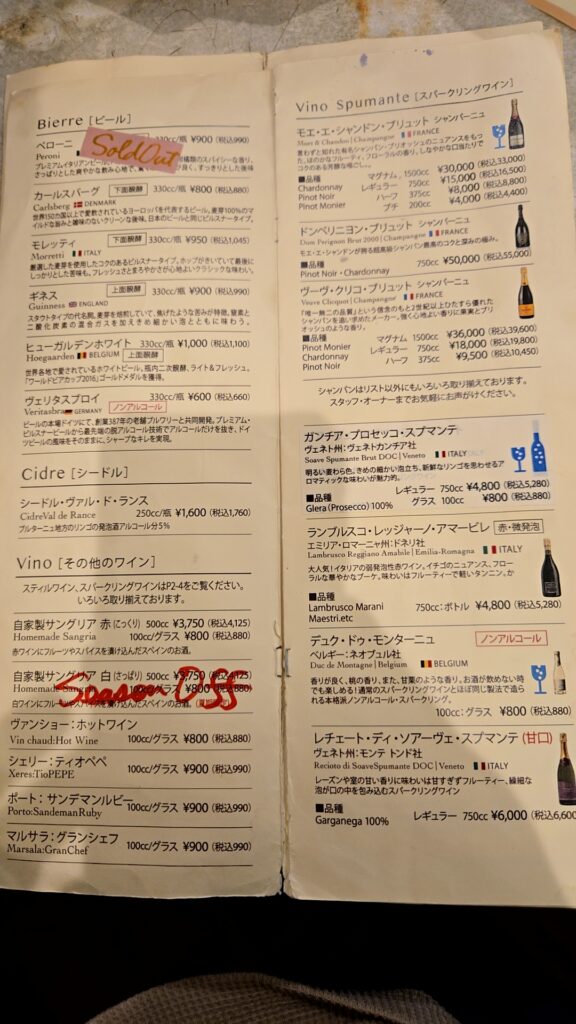 Bierre [ビール]
ペローニ 330cc/瓶 ¥900 (税込990)
Peroni
Sold Out
プレミアムイタリアンビール、
さっぱりとした爽やかな飲み心地で、
カールスバーグ 下面醗酵 330cc/瓶 ¥800 (税込880)
Carlsberg DENMARK
世界150カ国以上で愛飲されているヨーロッパを代表するビール。麦芽100%のマ
イルドな旨みと雑味のないクリーンな後味。日本のビールと同じピルスナータイプ。
モレッティ 下面醗酵 330cc/瓶 ¥950 (税込1,045)
Morretti ITALY
厳選した麦芽を使用したコクのあるピルスナータイプ。ホップがきいていて最後に
しっかりとした苦味も。フレッシュさとまろやかさが心地よいクラシックな味わい。
ギネス 上面醗酵 330cc/瓶 ¥900 (税込990)
Guinness ENGLAND
スタウトタイプの代名詞。麦芽を焙煎していて、焦げたような苦みが特徴。窒素と
二酸化炭素の混合ガスを加えきめ細かい泡とともに味わう。
ヒューガルデンホワイト 330cc/瓶 ¥1,000 (税込1,100)
Hoegaarden BELGIUM 上面醗酵
世界各地で愛されているホワイトビール。瓶内二次醗酵、ライト&フレッシュ。
「ワールドビアカップ2016」ゴールドメダルを獲得。
ヴェリタスブロイ 330cc/瓶 ¥600 (税込660)
Veritasbra GERMANY ノンアルコール
ビールの本場ドイツにて、創業387年の老舗ブルワリーと共同開発。プレミアム・
ピルスナービールから最先端の脱アルコール技術でアルコールだけを抜き、ドイ
ツビールの風味をそのままに、シャープなキレを実現。
Cidre [シードル]
シードル・ヴァル・ド・ランス 250cc/瓶 ¥1,600 (税込1,760)
CidreVal de Rance
ブルターニュ地方のリンゴの発泡酒アルコール分5%
Vino [その他のワイン]
スティルワイン、スパークリングワインはP2-4をご覧ください。
いろいろ取り揃えております。
自家製サングリア 赤 (こっくり) 500cc ¥3,750 (税込4,125)
Homemade Sangria 100cc/グラス ¥800 (税込880)
赤ワインにフルーツやスパイスを漬け込んだスペインのお酒。
自家製サングリア 白 (さっぱり) 500cc ¥3,750 (税込4,125)
Homemade Sangria 100cc/グラス ¥800 (税込880)
Season Off
白ワインにフルーツやスパイスを漬け込んだスペインのお酒。
ヴァンショー:ホットワイン
Vin chaud:Hot Wine 100cc/グラス ¥800 (税込880)
シェリー:ティオペペ
Xeres:TioPEPE 100cc/グラス ¥900 (税込990)
ポート: サンデマンルビー
Porto:SandemanRuby 100cc/グラス ¥900 (税込990)
マルサラ:グランシェフ
Marsala:GranChef 100cc/グラス ¥900 (税込990)
Vino Spumante [スパークリングワイン]
モエ・エ・シャンドン・ブリュット シャンパーニュ
Moët & Chandon | Champangne FRANCE
言わずと知れた有名シャンパン・ブリオッシュのニュアンスをもっ
た、ほのかなフルーティ、フローラルの香り。しなやかな口当たりで
コクのある芳醇な極ごし。
■品種 マグナム、1500cc ¥30,000 (税込33,000)
Chardonnay レギュラー 750cc ¥15,000 (税込16,500)
Pinot Noir ハーフ 375cc ¥8,000 (税込8,800)
Pinot Monier プチ 200cc ¥4,000 (税込4,400)
ドンペリニヨン・ブリュット シャンパーニュ
Dom Perignon Brut 2000 | Champangne FRANCE
モエ・エ・シャンドンが誇る超高級シャンパン最高のコクと深みの極み。
■品種
Pinot Noir・Chardonnay 750cc ¥50,000 (税込55,000)
ヴーヴ・クリコ・ブリュット シャンパーニュ
Veuve Clicquot | Champangne FRANCE
「唯一無二の品質」という信念のもと2世紀以上ひたすら優れた
シャンパンを追い求めたメーカー。強く心地よい香りに果実とブリ
オッシュのような香り。
■品種 マグナム 1500cc ¥36,000 (税込39,600)
Pinot Monier レギュラー 750cc ¥18,000 (税込19,800)
Chardonnay ハーフ 375cc ¥9,500 (税込10,450)
Pinot Noir
シャンパンはリスト以外にもいろいろ取り揃えております。
スタッフ・オーナーまでお気軽にお声がけください。
ガンチア・プロセッコ・スプマンテ
ヴェネト州:ヴェネトガンチア社
Soave Spumante Brut DOC | Veneto ITALY
明るい麦わら色。きめの細かい泡立ち、新鮮なリンゴを思わせるア
ロマティックな味わいが魅力的。
■品種 レギュラー 750cc ¥4,800 (税込5,280)
Glera (Prosecco) 100% グラス 100cc ¥800 (税込880)
ランブルスコ・レッジャーノ・アマービレ 赤・微発泡
エミリア・ロマーニャ州:ドネリ社
Lambrusco Reggiano Amabile | Emilia-Romagna ITALY
大人気!イタリアの弱発泡性赤ワイン。イチゴのニュアンス、フロー
ラルな華やかなブーケ。味わいはフルーティーで軽いタンニン。か
■品種
Lambrusco Marani 750cc:ボトル ¥4,800 (税込5,280)
Maestri.etc
デュク・ドゥ・モンターニュ ノンアルコール
ベルギー:ネオブュル社
Duc de Montagne | Belgium BELGIUM
香りが良く、桃の香り、また、甘栗のような香り。お酒が飲めない時
でも楽しめる!通常のスパークリングワインとほぼ同じ製法で造ら
れる本格派ノンアルコール・スパークリング。
100cc:グラス ¥800 (税込880)
レチェート・ディ・ソアーヴェ・スプマンテ (甘口)
ヴェネト州:モンテ トンド社
Recioto di SoaveSpumante DOC | Veneto ITALY
レーズンや室の甘い香りに味わいは甘すぎずフルーティー、繊細な
泡が口の中を包み込むスパークリングワイン
■品種
Garganega 100% レギュラー 750cc ¥6,000 (税込6,600